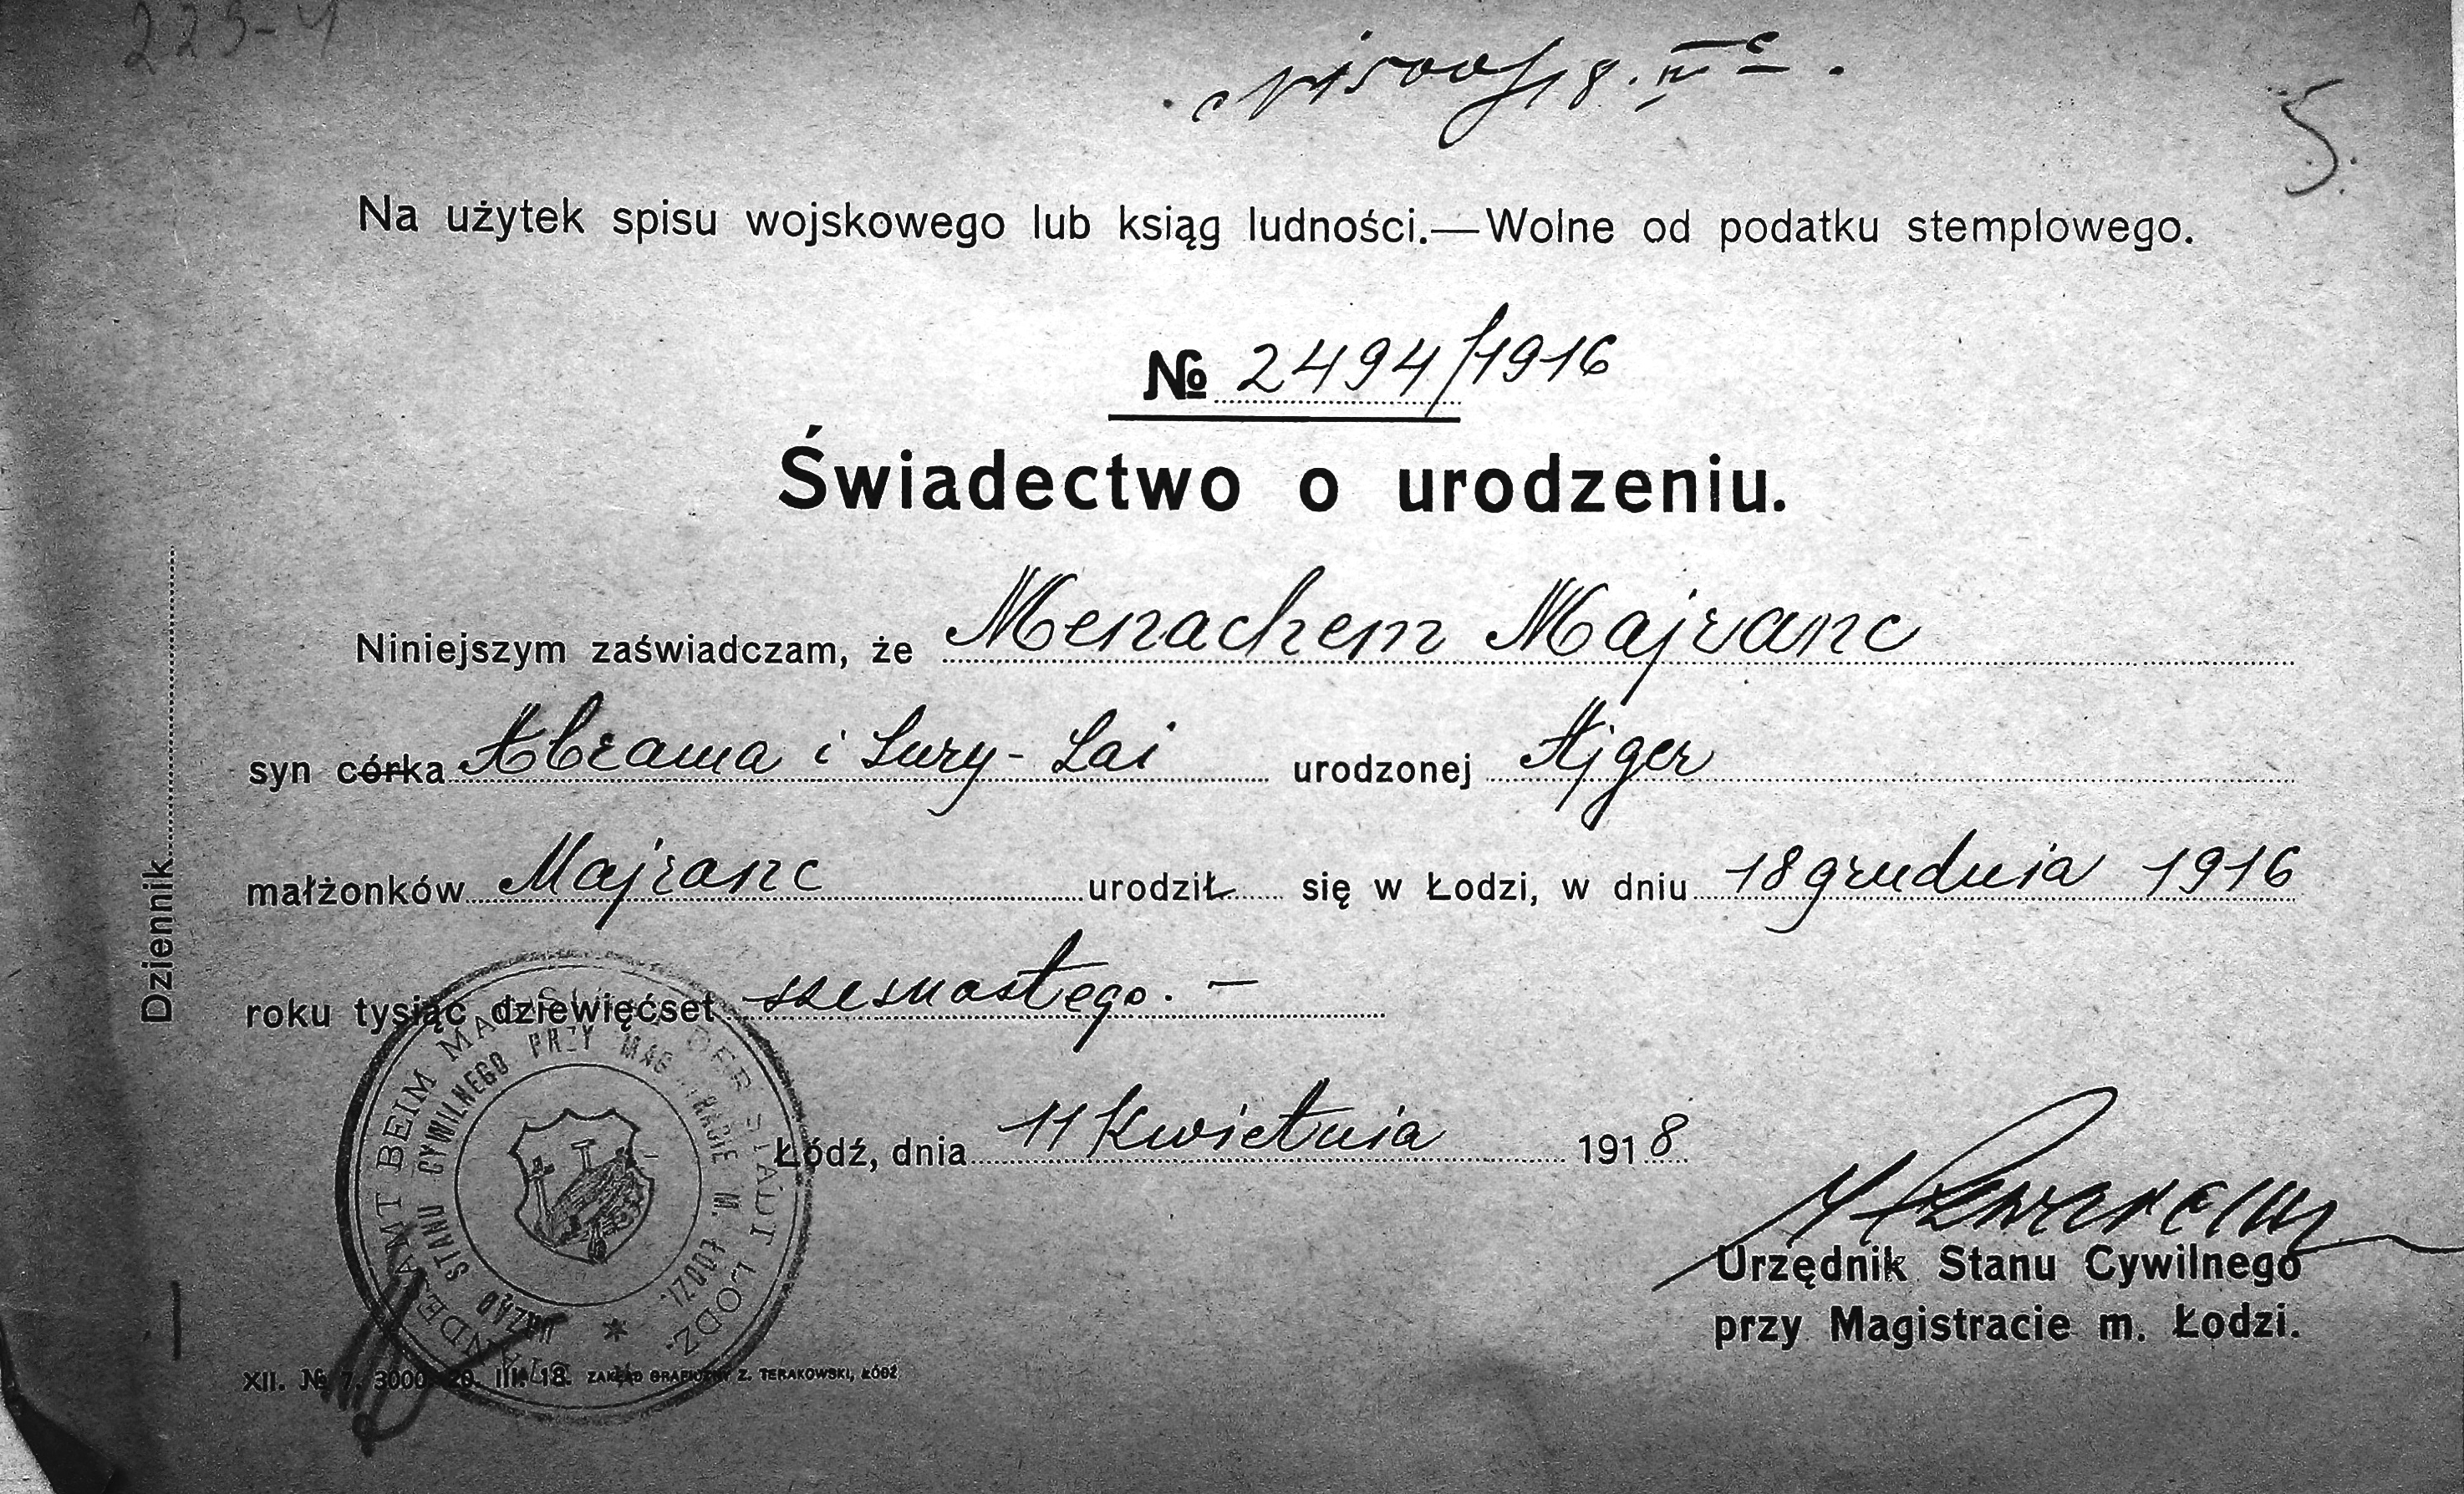 223-4
5.
Na użytek spisu wojskowego lub ksiąg ludności.—Wolne od podatku stemplowego.
№ 2494/1916
Świadectwo o urodzeniu.
Niniejszym zaświadczam, że Menachem Majranc
syn córka Abrama i Sury-Lai urodzonej Ajger
małżonków Majranc urodził się w Łodzi, w dniu 18 grudnia 1916
roku tysiąc dziewięćset szesnastego. —
Łódź, dnia 11 Kwietnia 1918
Urzędnik Stanu Cywilnego
przy Magistracie m. Łodzi.
Dziennik
STANDESAMT BEIM MAGISTRAT DER STADT LODZ.
URZĄD STANU CYWILNEGO PRZY MAGISTRACIE M. ŁODZI.
XII. № 7. 3000. 20. III. 18. ZAKŁAD GRAFICZNY Z. TERAKOWSKI, ŁÓDŹ